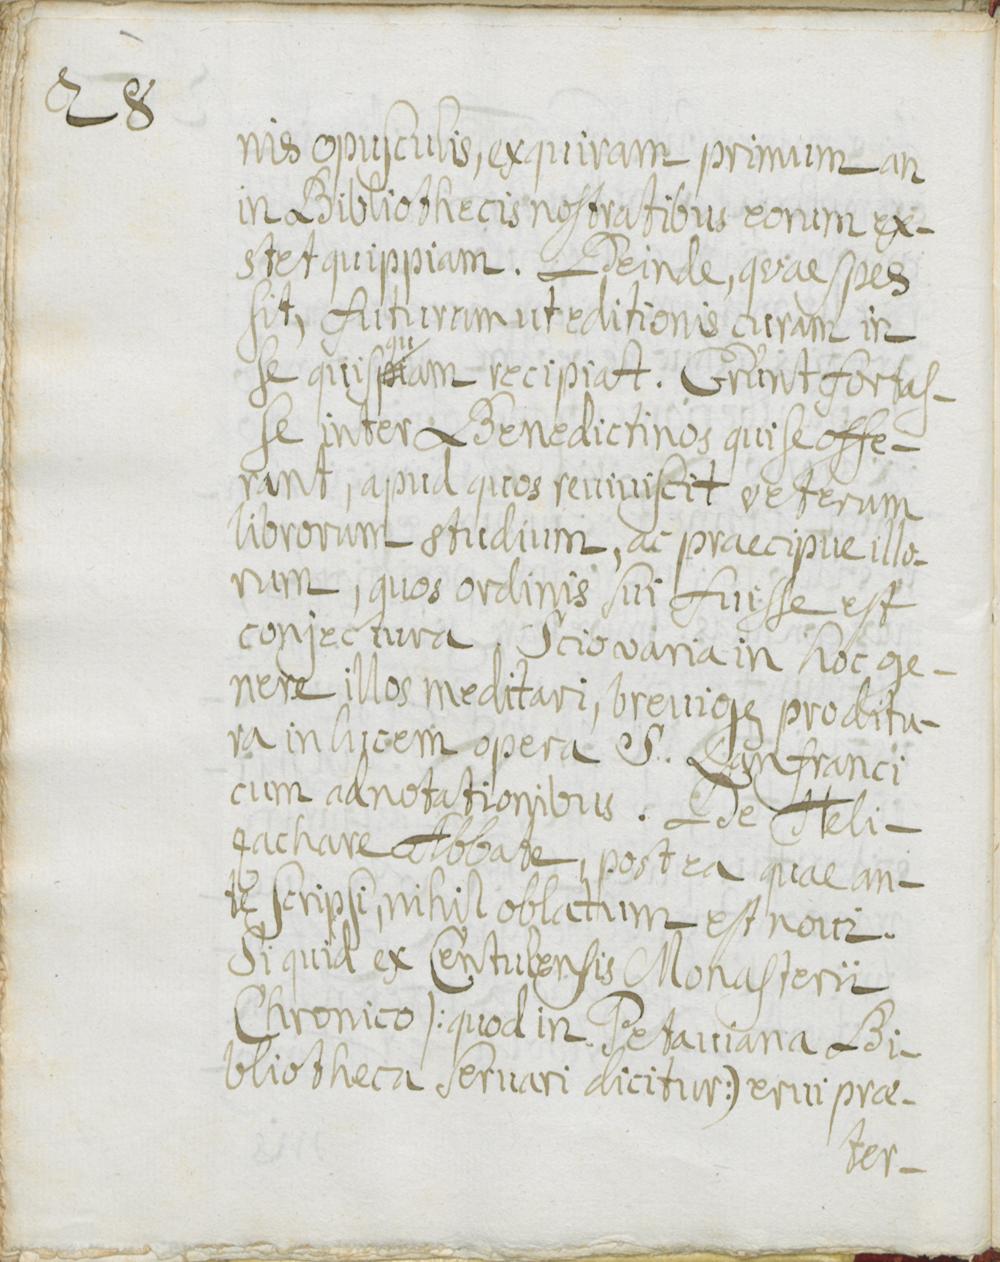 28
nis opusculis, exquiram primum an
in Bibliothecis nostratibus eorum ex-
stet quippiam. Deinde, quae spes
sit, futurum ut editionis curam in
se quisquam recipiat. Erunt fortas-
se inter Benedictinos qui se offe-
rant, apud quos reuiuiscit veterum
librorum studium, ac praecipue illo-
rum, quos ordinis sui fuisse est
conjectura. Scio varia in hoc ge-
nere illos meditari, breuique proditu-
ra in lucem opera S. Lanfranci
cum adnotationibus. De Heli-
gachare Abbate, post ea quae an-
te scripsi, nihil oblatum est noui.
Si quid ex Centulensis Monasterii
Chronico |: quod in Petauiana Bi-
bliotheca seruari dicitur:) erui prae-
ter-